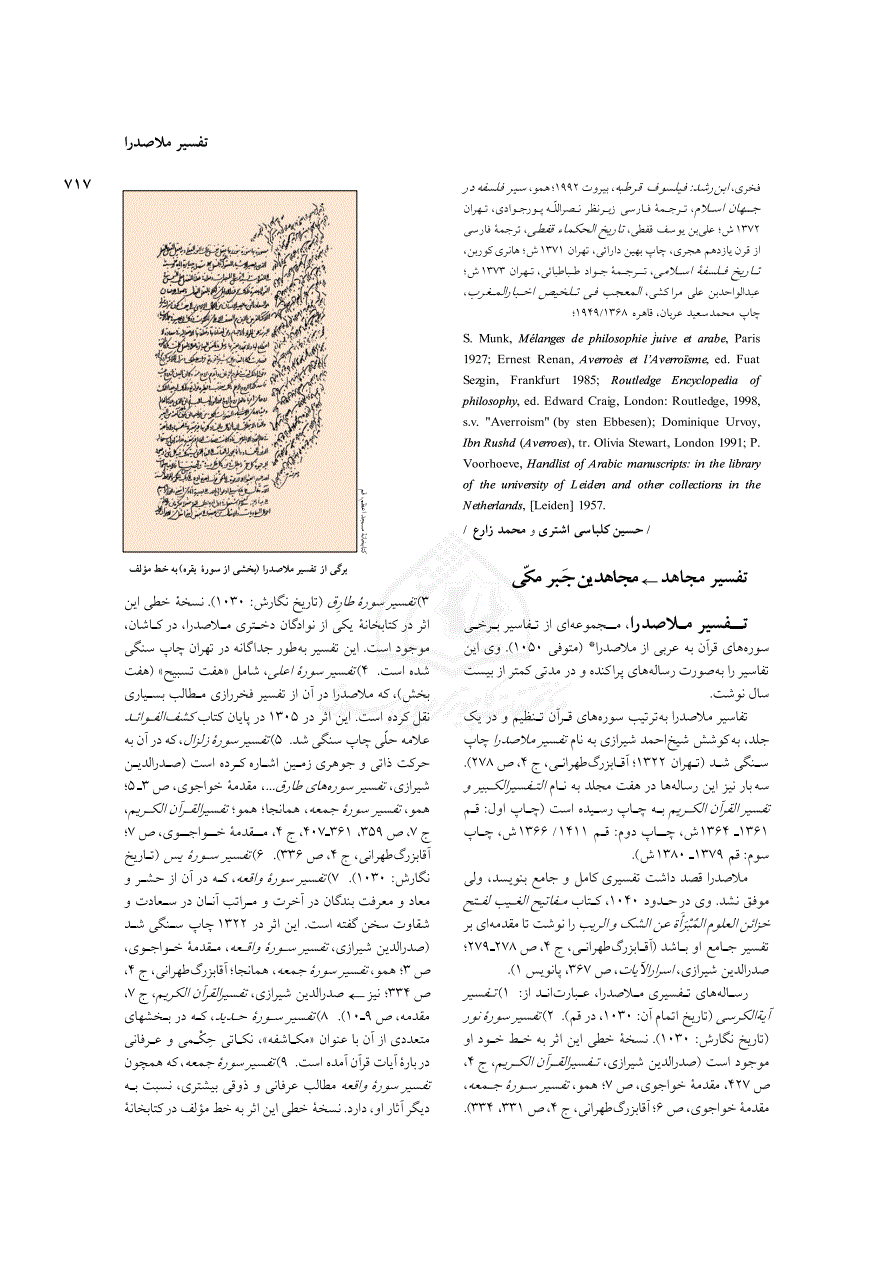 تفسیر ملاصدرا
۷۱۷
فخری، ابن‌رشد: فیلسوف قرطبه، بیروت ۱۹۹۲؛ همو، سیر فلسفه در
جهان اسلام، ترجمهٔ فارسی زیرنظر نصراللّه پورجوادی، تهران
۱۳۷۲ ش؛ علی‌بن یوسف قفطی، تاریخ الحکماء قفطی، ترجمهٔ فارسی
از قرن یازدهم هجری، چاپ بهین دارائی، تهران ۱۳۷۱ ش؛ هانری کوربن،
تاریخ فلسفهٔ اسلامی، ترجمهٔ جواد طباطبائی، تهران ۱۳۷۳ ش؛
عبدالواحدبن علی مراکشی، المعجب فی تلخیص اخبارالمغرب،
چاپ محمدسعید عریان، قاهره ۱۹۴۹/۱۳۶۸؛
S. Munk, Mélanges de philosophie juive et arabe, Paris
1927; Ernest Renan, Averroès et l'Averroïsme, ed. Fuat
Sezgin, Frankfurt 1985; Routledge Encyclopedia of
philosophy, ed. Edward Craig, London: Routledge, 1998,
s.v. "Averroism" (by sten Ebbesen); Dominique Urvoy,
Ibn Rushd (Averroes), tr. Olivia Stewart, London 1991; P.
Voorhoeve, Handlist of Arabic manuscripts: in the library
of the university of Leiden and other collections in the
Netherlands, [Leiden] 1957.
/ حسین کلباسی اشتری و محمد زارع /
تفسیر مجاهد ← مجاهدبن جَبر مکّی
تفسیر ملاصدرا، مجموعه‌ای از تفاسیر برخی
سوره‌های قرآن به عربی از ملاصدرا* (متوفی ۱۰۵۰). وی این
تفاسیر را به‌صورت رساله‌های پراکنده و در مدتی کمتر از بیست
سال نوشت.
تفاسیر ملاصدرا به‌ترتیب سوره‌های قرآن تنظیم و در یک
جلد، به‌کوشش شیخ‌احمد شیرازی به نام تفسیر ملاصدرا چاپ
سنگی شد (تهران ۱۳۲۲؛ آقابزرگ‌طهرانی، ج ۴، ص ۲۷۸).
سه بار نیز این رساله‌ها در هفت مجلد به نام التفسیرالکبیر و
تفسیر القرآن الکریم به چاپ رسیده است (چاپ اول: قم
۱۳۶۱ـ ۱۳۶۴ ش، چاپ دوم: قم ۱۴۱۱/ ۱۳۶۶ ش، چاپ
سوم: قم ۱۳۷۹ـ ۱۳۸۰ ش).
ملاصدرا قصد داشت تفسیری کامل و جامع بنویسد، ولی
موفق نشد. وی در حدود ۱۰۴۰، کتاب مفاتیح الغیب لفتح
خزائن العلوم المُبَرَّأة عن الشک و الریب را نوشت تا مقدمه‌ای بر
تفسیر جامع او باشد (آقابزرگ‌طهرانی، ج ۴، ص ۲۷۸ـ۲۷۹؛
صدرالدین شیرازی، اسرارالآیات، ص ۳۶۷، پانویس ۱).
رساله‌های تفسیری ملاصدرا، عبارت‌اند از: ۱) تفسیر
آیةالکرسی (تاریخ اتمام آن: ۱۰۳۰، در قم). ۲) تفسیر سورهٔ نور
(تاریخ نگارش: ۱۰۳۰). نسخهٔ خطی این اثر به خط خود او
موجود است (صدرالدین شیرازی، تفسیرالقرآن الکریم، ج ۴،
ص ۴۲۷، مقدمهٔ خواجوی، ص ۷؛ همو، تفسیر سورهٔ جمعه،
مقدمهٔ خواجوی، ص ۶؛ آقابزرگ‌طهرانی، ج ۴، ص ۳۳۱، ۳۳۴).
کتابخانهٔ مسجد اعظم، قم
برگی از تفسیر ملاصدرا (بخشی از سورهٔ بقره) به خط مؤلف
۳) تفسیر سورهٔ طارِق (تاریخ نگارش: ۱۰۳۰). نسخهٔ خطی این
اثر در کتابخانهٔ یکی از نوادگان دختری ملاصدرا، در کاشان،
موجود است. این تفسیر به‌طور جداگانه در تهران چاپ سنگی
شده است. ۴) تفسیر سورهٔ اعلی، شامل «هفت تسبیح» (هفت
بخش)، که ملاصدرا در آن از تفسیر فخررازی مطالب بسیاری
نقل کرده است. این اثر در ۱۳۰۵ در پایان کتاب کشف‌الفوائد
علامه حلّی چاپ سنگی شد. ۵) تفسیر سورهٔ زلزال، که در آن به
حرکت ذاتی و جوهری زمین اشاره کرده است (صدرالدین
شیرازی، تفسیر سوره‌های طارق...، مقدمهٔ خواجوی، ص ۳ـ ۵؛
همو، تفسیر سورهٔ جمعه، همانجا؛ همو؛ تفسیرالقرآن الکریم،
ج ۷، ص ۳۵۹، ۳۶۱ـ۴۰۷، ج ۴، مقدمهٔ خواجوی، ص ۷؛
آقابزرگ‌طهرانی، ج ۴، ص ۳۳۶). ۶) تفسیر سورهٔ یس (تاریخ
نگارش: ۱۰۳۰). ۷) تفسیر سورهٔ واقعه، که در آن از حشر و
معاد و معرفت بندگان در آخرت و مراتب آنان در سعادت و
شقاوت سخن گفته است. این اثر در ۱۳۲۲ چاپ سنگی شد
(صدرالدین شیرازی، تفسیر سورهٔ واقعه، مقدمهٔ خواجوی،
ص ۳؛ همو، تفسیر سورهٔ جمعه، همانجا؛ آقابزرگ‌طهرانی، ج ۴،
ص ۳۳۴؛ نیز ← صدرالدین شیرازی، تفسیرالقرآن الکریم، ج ۷،
مقدمه، ص ۹ـ۱۰). ۸) تفسیر سورهٔ حدید، که در بخشهای
متعددی از آن با عنوان «مکاشفه»، نکاتی حِکْمی و عرفانی
دربارهٔ آیات قرآن آمده است. ۹) تفسیر سورهٔ جمعه، که همچون
تفسیر سورهٔ واقعه مطالب عرفانی و ذوقی بیشتری، نسبت به
دیگر آثار او، دارد. نسخهٔ خطی این اثر به خط مؤلف در کتابخانهٔ